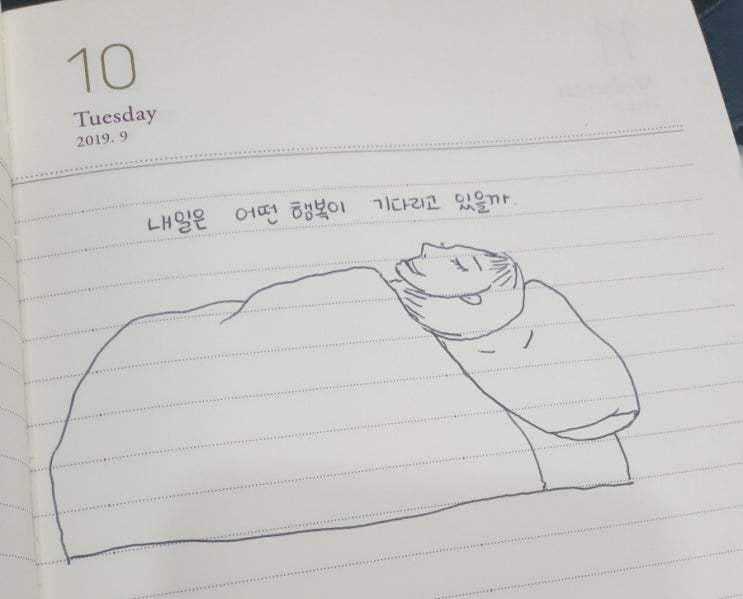 10
Tuesday
2019. 9
내일은 어떤 행복이 기다리고 있을까.